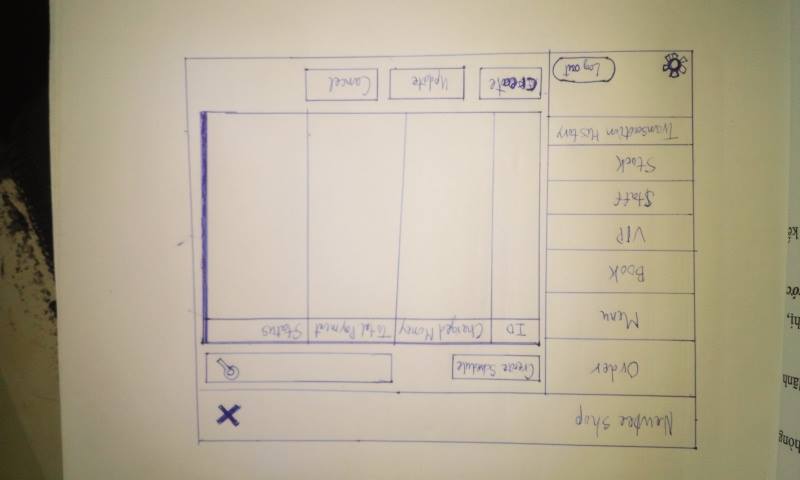 hòng
lãnh
hị,
ước
kế
Newbee shop
Order
Menu
Book
VIP
Staff
Stock
Transaction History
Log out
Create Schedule
ID Charged Money Total Payment Status
Create Update Cancel